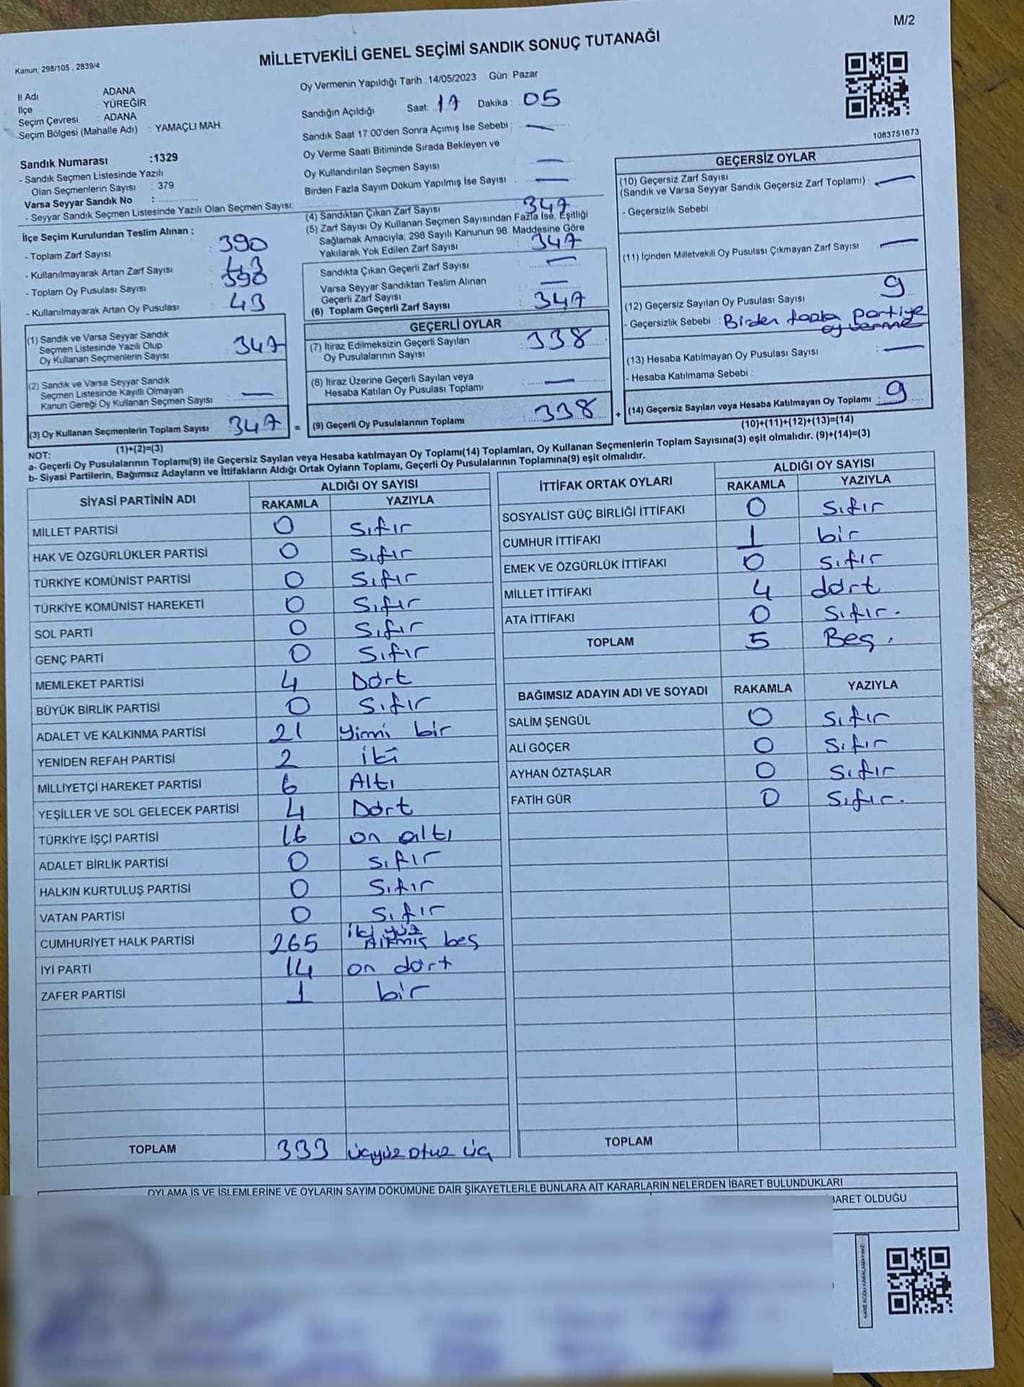 M/2
MİLLETVEKİLİ GENEL SEÇİMİ SANDIK SONUÇ TUTANAĞI
Kanun: 298/105 , 2839/4
İl Adı ADANA
İlçe YÜREĞİR
Seçim Çevresi : ADANA
Seçim Bölgesi (Mahalle Adı) : YAMAÇLI MAH.
Sandık Numarası :1329
- Sandık Seçmen Listesinde Yazılı
Olan Seçmenlerin Sayısı : 379
Varsa Seyyar Sandık No :
- Seyyar Sandık Seçmen Listesinde Yazılı Olan Seçmen Sayısı:
Oy Vermenin Yapıldığı Tarih :14/05/2023 Gün Pazar
Sandığın Açıldığı Saat: 17 Dakika : 05
Sandık Saat 17:00'den Sonra Açımış İse Sebebi : —
Oy Verme Saati Bitiminde Sırada Bekleyen ve
Oy Kullandırılan Seçmen Sayısı —
Birden Fazla Sayım Döküm Yapılmış İse Sayısı : —
1083751673
İlçe Seçim Kurulundan Teslim Alınan :
- Toplam Zarf Sayısı : 390
- Kullanılmayarak Artan Zarf Sayısı : 43
- Toplam Oy Pusulası Sayısı : 390
- Kullanılmayarak Artan Oy Pusulası : 43
(1) Sandık ve Varsa Seyyar Sandık
Seçmen Listesinde Yazılı Olup
Oy Kullanan Seçmenlerin Sayısı : 347
(2) Sandık ve Varsa Seyyar Sandık
Seçmen Listesinde Kayıtlı Olmayan
Kanun Gereği Oy Kullanan Seçmen Sayısı : —
(3) Oy Kullanan Seçmenlerin Toplam Sayısı : 347
(1)+(2)=(3)
(4) Sandıktan Çıkan Zarf Sayısı : 347
(5) Zarf Sayısı Oy Kullanan Seçmen Sayısından Fazla İse, Eşitliği
Sağlamak Amacıyla, 298 Sayılı Kanunun 98. Maddesine Göre
Yakılarak Yok Edilen Zarf Sayısı : 347
Sandıkta Çıkan Geçerli Zarf Sayısı : —
Varsa Seyyar Sandıktan Teslim Alınan
Geçerli Zarf Sayısı : —
(6) Toplam Geçerli Zarf Sayısı : 347
GEÇERLİ OYLAR
(7) İtiraz Edilmeksizin Geçerli Sayılan
Oy Pusulalarının Sayısı : 338
(8) İtiraz Üzerine Geçerli Sayılan veya
Hesaba Katılan Oy Pusulası Toplamı : —
= (9) Geçerli Oy Pusulalarının Toplamı : 338
GEÇERSİZ OYLAR
(10) Geçersiz Zarf Sayısı
(Sandık ve Varsa Seyyar Sandık Geçersiz Zarf Toplamı) : —
- Geçersizlik Sebebi
(11) İçinden Milletvekili Oy Pusulası Çıkmayan Zarf Sayısı : —
(12) Geçersiz Sayılan Oy Pusulası Sayısı : 9
- Geçersizlik Sebebi : Birden fazla partiye
oy verme
(13) Hesaba Katılmayan Oy Pusulası Sayısı : —
- Hesaba Katılmama Sebebi :
+ (14) Geçersiz Sayılan veya Hesaba Katılmayan Oy Toplamı : 9
(10)+(11)+(12)+(13)=(14)
NOT:
a- Geçerli Oy Pusulalarının Toplamı(9) ile Geçersiz Sayılan veya Hesaba katılmayan Oy Toplamı(14) Toplamları, Oy Kullanan Seçmenlerin Toplam Sayısına(3) eşit olmalıdır. (9)+(14)=(3)
b- Siyasi Partilerin, Bağımsız Adayların ve İttifakların Aldığı Ortak Oyların Toplamı, Geçerli Oy Pusulalarının Toplamına(9) eşit olmalıdır.
SİYASİ PARTİNİN ADI ALDIĞI OY SAYISI
RAKAMLA YAZIYLA
MİLLET PARTİSİ 0 Sıfır
HAK VE ÖZGÜRLÜKLER PARTİSİ 0 Sıfır
TÜRKİYE KOMÜNİST PARTİSİ 0 Sıfır
TÜRKİYE KOMÜNİST HAREKETİ 0 Sıfır
SOL PARTİ 0 Sıfır
GENÇ PARTİ 0 Sıfır
MEMLEKET PARTİSİ 4 Dört
BÜYÜK BİRLİK PARTİSİ 0 Sıfır
ADALET VE KALKINMA PARTİSİ 21 Yirmi bir
YENİDEN REFAH PARTİSİ 2 iki
MİLLİYETÇİ HAREKET PARTİSİ 6 Altı
YEŞİLLER VE SOL GELECEK PARTİSİ 4 Dört
TÜRKİYE İŞÇİ PARTİSİ 16 on altı
ADALET BİRLİK PARTİSİ 0 sıfır
HALKIN KURTULUŞ PARTİSİ 0 Sıfır
VATAN PARTİSİ 0 Sıfır
CUMHURİYET HALK PARTİSİ 265 iki yüz
Altmış beş
İYİ PARTİ 14 on dört
ZAFER PARTİSİ 1 bir
TOPLAM 333 üçyüz otuz üç
İTTİFAK ORTAK OYLARI ALDIĞI OY SAYISI
RAKAMLA YAZIYLA
SOSYALİST GÜÇ BİRLİĞİ İTTİFAKI 0 Sıfır
CUMHUR İTTİFAKI 1 bir
EMEK VE ÖZGÜRLÜK İTTİFAKI 0 Sıfır
MİLLET İTTİFAKI 4 dört
ATA İTTİFAKI 0 Sıfır.
TOPLAM 5 Beş.
BAĞIMSIZ ADAYIN ADI VE SOYADI RAKAMLA YAZIYLA
SALİM ŞENGÜL 0 Sıfır
ALİ GÖÇER 0 Sıfır
AYHAN ÖZTAŞLAR 0 Sıfır
FATİH GÜR 0 Sıfır.
TOPLAM
OYLAMA İŞ VE İŞLEMLERİNE VE OYLARIN SAYIM DÖKÜMÜNE DAİR ŞİKAYETLERLE BUNLARA AİT KARARLARIN NELERDEN İBARET BULUNDUKLARI
İBARET OLDUĞU